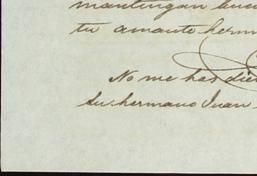 mantingan
tu amante herm
No me has dic
Su hermano Juan